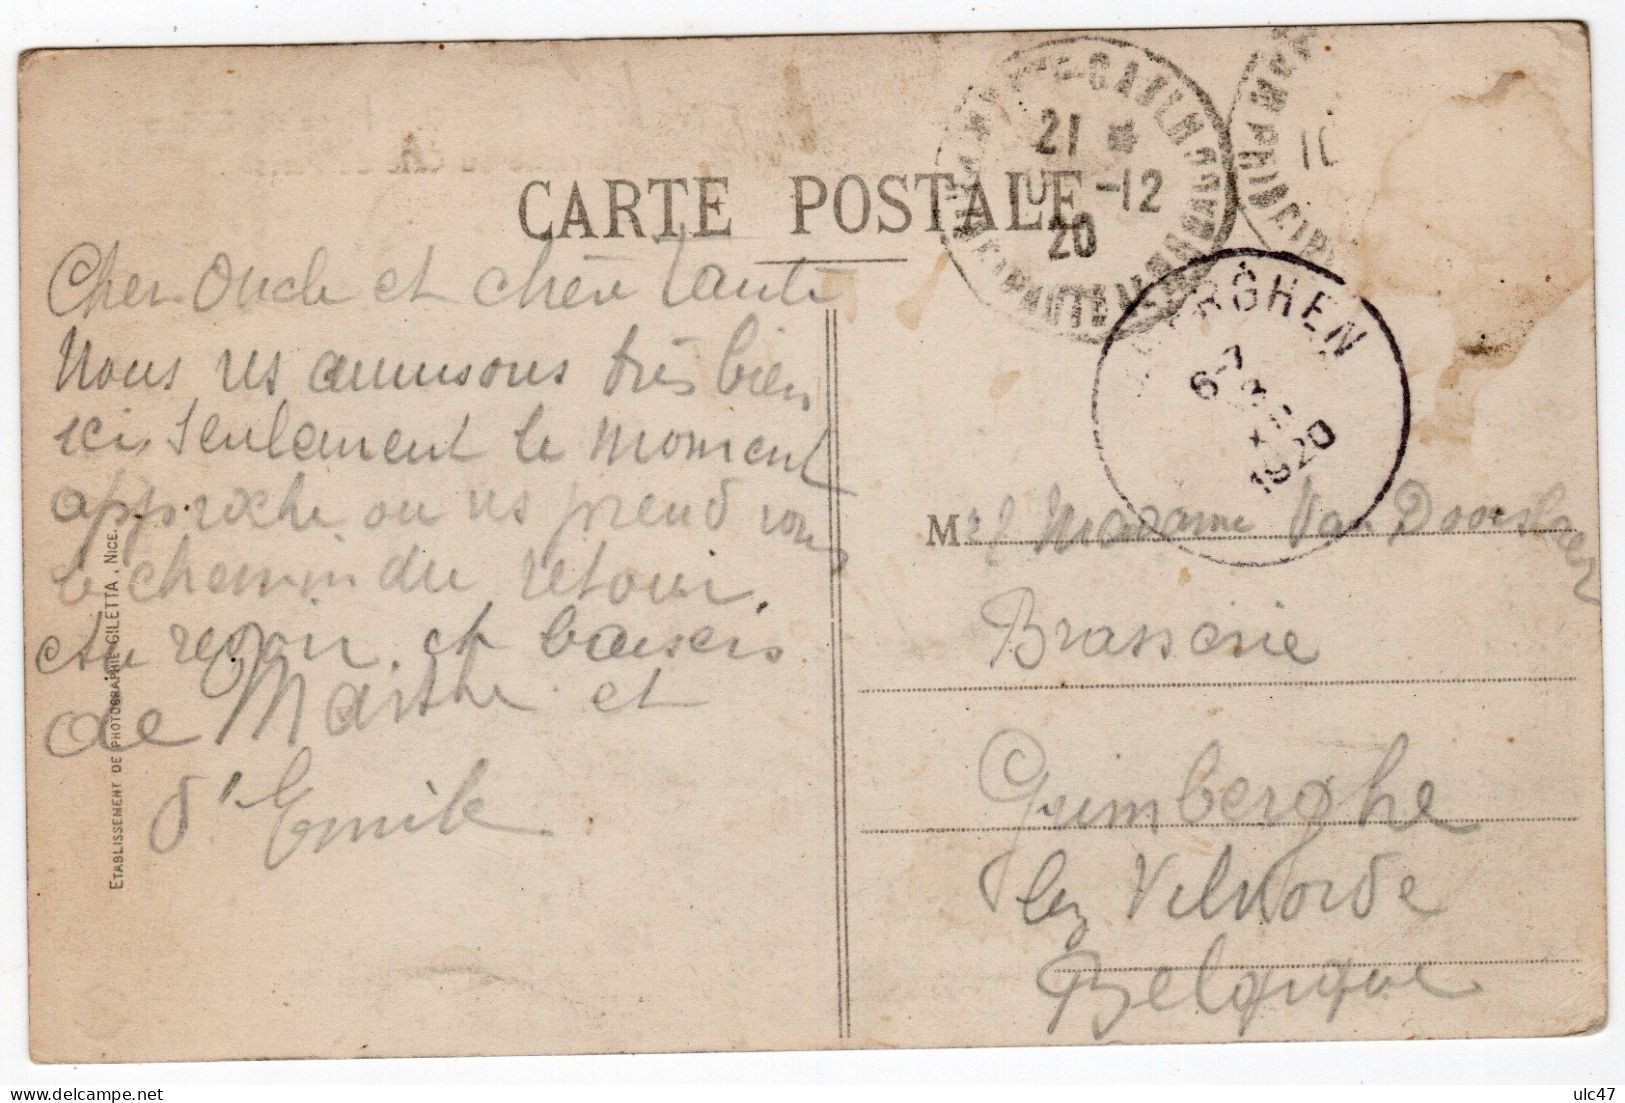 CARTE POSTALE
MONTE-CARLO
PRINCIPAUTE
21 *
-12
20
PRINCIPA
10
BERGHEN
6-7
XII
1920
Cher Oncle et chère Tante
Nous ns amusons très bien
ici, seulement le moment
approche ou ns prend rons
le chemin du retour.
Au revoir et baisers
de Marthe et
d'Emile
ETABLISSEMENT DE PHOTOGRAPHIE GILETTA, NICE.
Mr & Madame Van Doorslaer
Brasserie
Grimberghe
lez Vilvorde
Belgique
ulc47